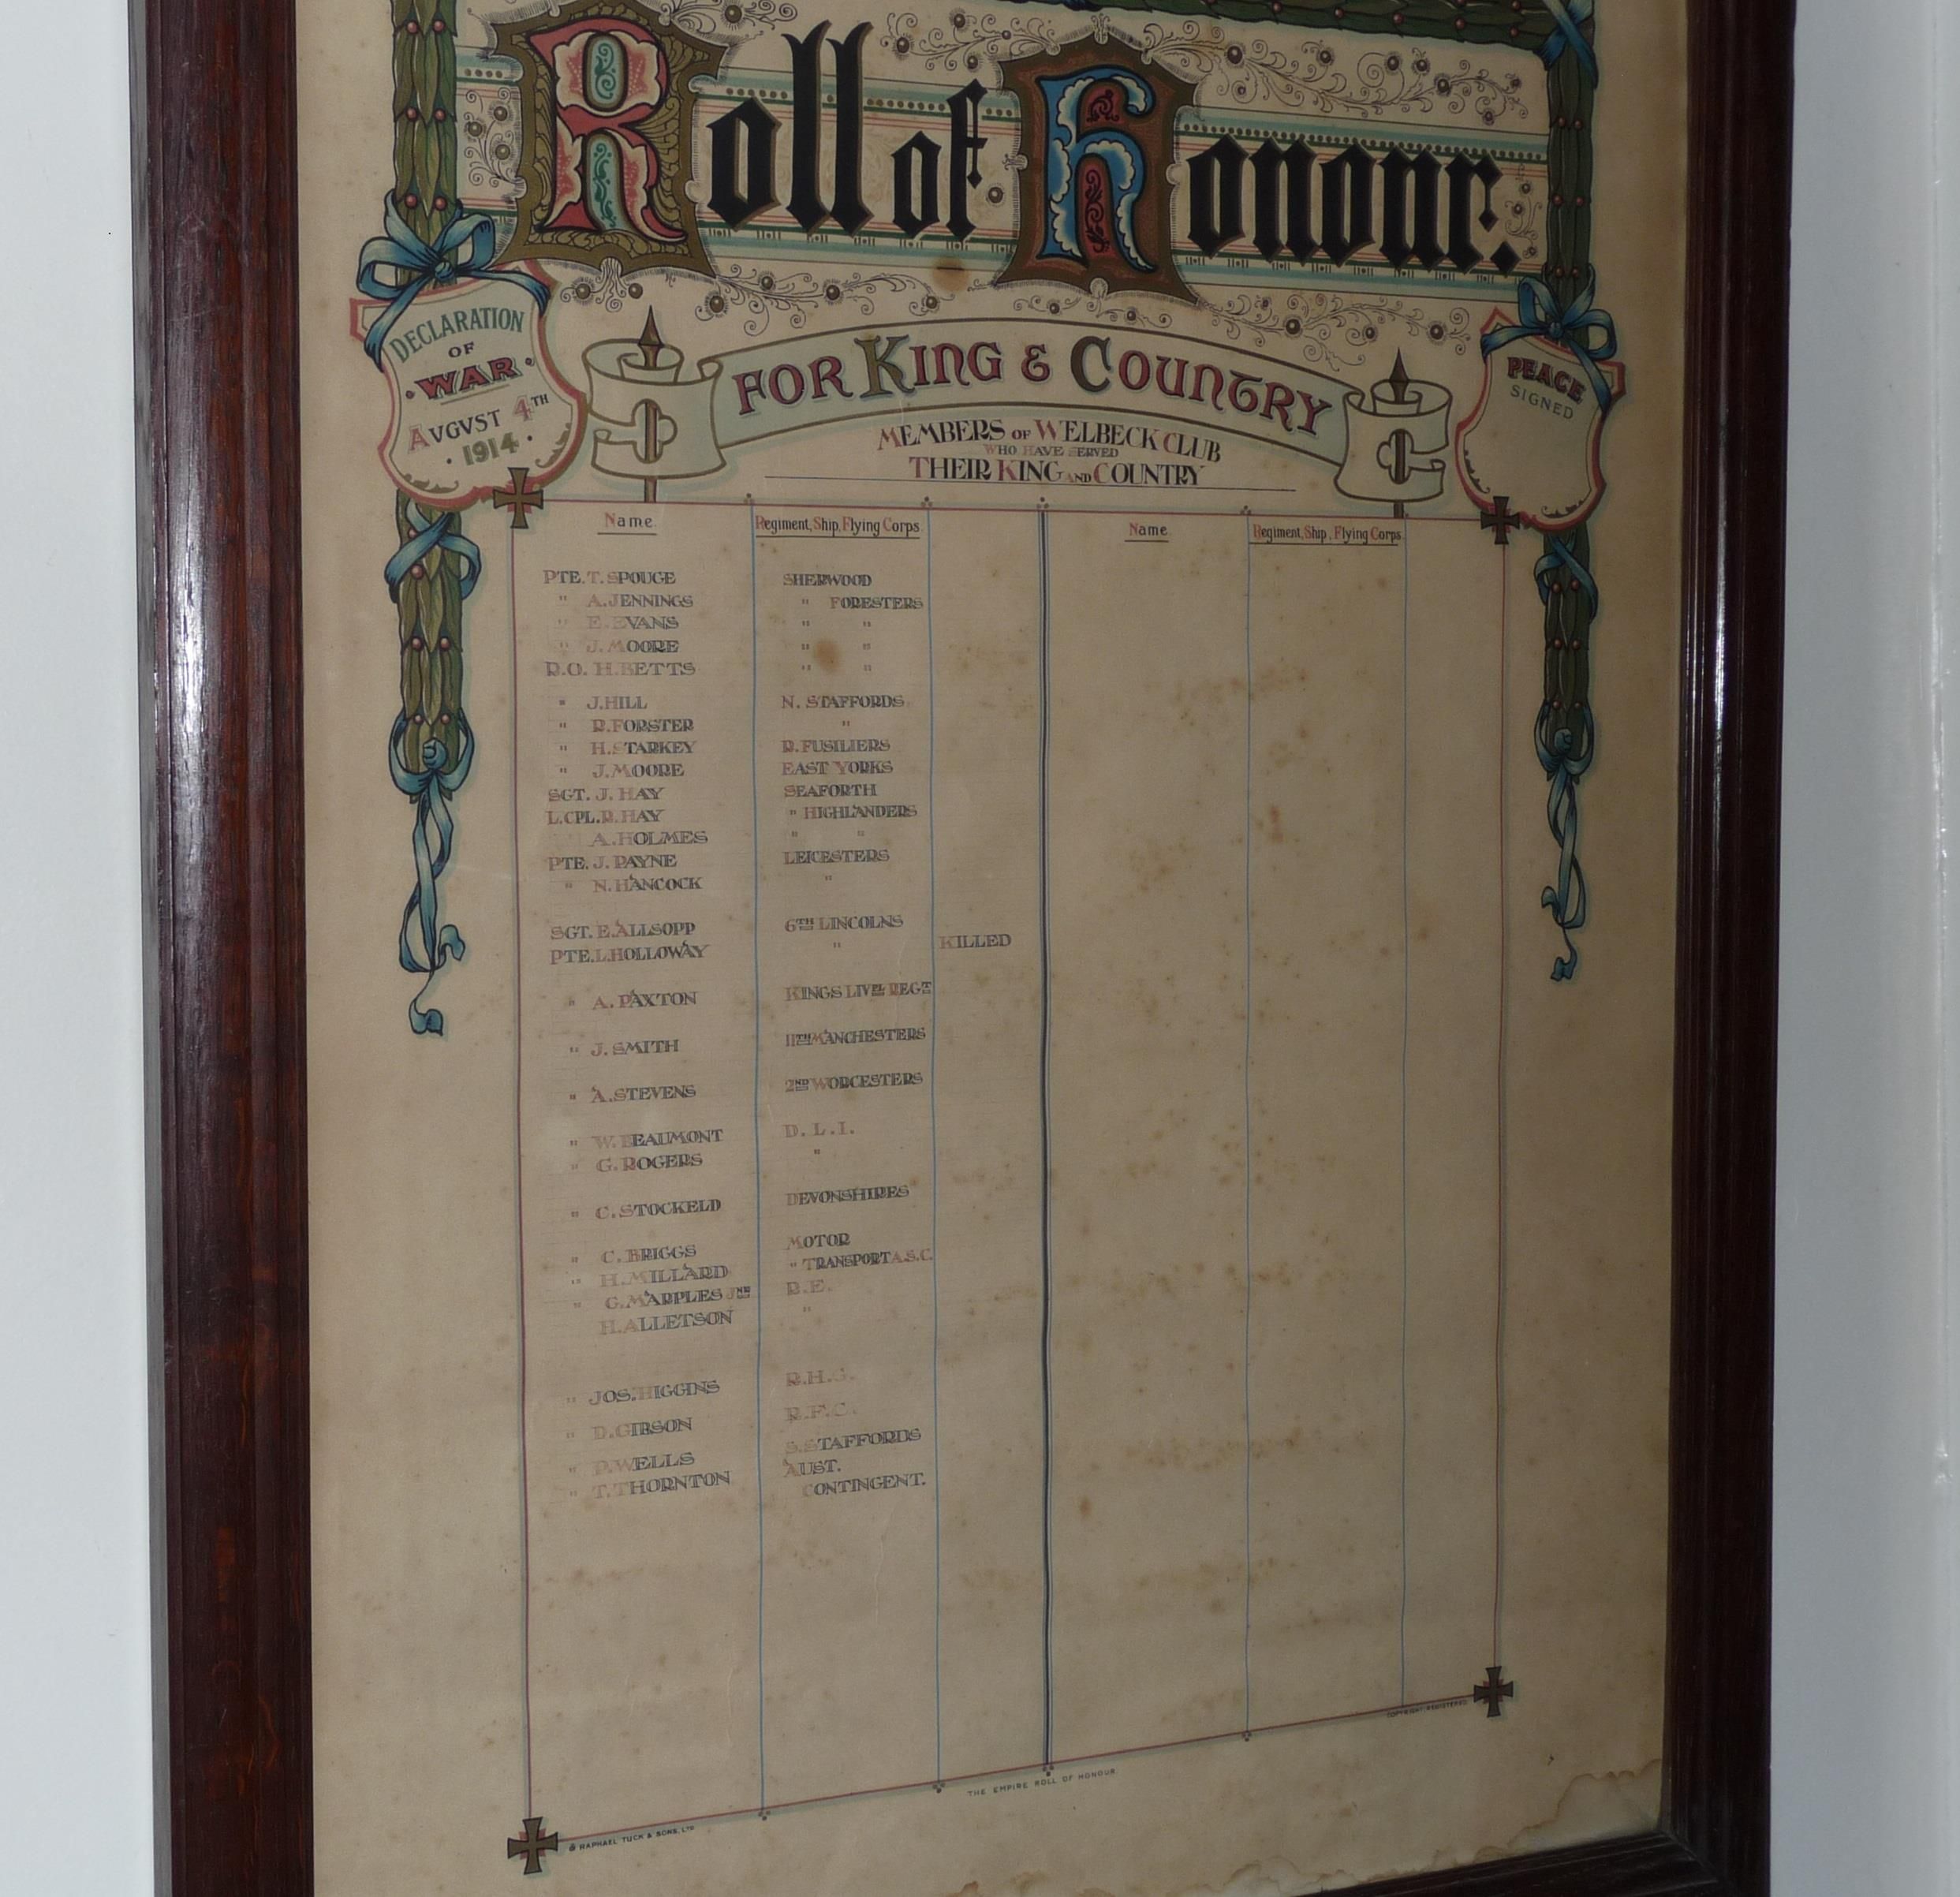 Roll of Honour.
DECLARATION
OF
WAR
AVGVST 4TH
1914
FOR KING & COUNTRY
PEACE
SIGNED
MEMBERS OF WELBECK CLUB
WHO HAVE SERVED
THEIR KING AND COUNTRY
Name Regiment, Ship, Flying Corps Name Regiment, Ship, Flying Corps
PTE. T. SPOUGE SHERWOOD
" A. JENNINGS " FORESTERS
" E. EVANS " "
" J. MOORE " "
R.O. H. BETTS " "
" J. HILL N. STAFFORDS
" R. FORSTER "
" H. STARKEY R. FUSILIERS
" J. MOORE EAST YORKS
SGT. J. HAY SEAFORTH
L.CPL. R. HAY " HIGHLANDERS
A. HOLMES " "
PTE. J. PAYNE LEICESTERS
" N. HANCOCK "
SGT. E. ALLSOPP 6TH LINCOLNS
PTE. L. HOLLOWAY " KILLED
" A. PAXTON KINGS LIVPL REGT
" J. SMITH 11TH MANCHESTERS
" A. STEVENS 2ND WORCESTERS
" W. BEAUMONT D. L. I.
" G. ROGERS "
" C. STOCKELD DEVONSHIRES
" C. BRIGGS MOTOR
" H. MILLARD " TRANSPORT A.S.C.
" G. MARPLES JNR R.E.
H. ALLETSON "
" JOS. HIGGINS R.H.G.
" D. GIBSON R.F.C.
" P. WELLS S. STAFFORDS
" T. THORNTON AUST.
CONTINGENT.
COPYRIGHT REGISTERED
THE EMPIRE ROLL OF HONOUR.
RAPHAEL TUCK & SONS, LTD